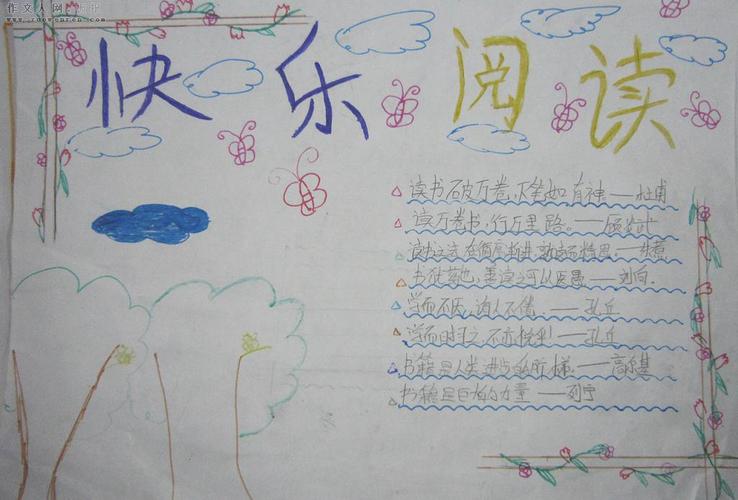 作文人网
www.zuowenren.com
快乐阅读
读书破万卷,下笔如有神——杜甫
读万卷书,行万里路。——顾炎武
读书之法在循序渐进,熟读而精思。——朱熹
书犹药也,善读之可以医愚——刘向.
学而不厌,诲人不倦——孔丘
学而时习之不亦悦乎——孔丘
书籍是人类进步的阶梯——高尔基
书籍是巨大的力量——列宁